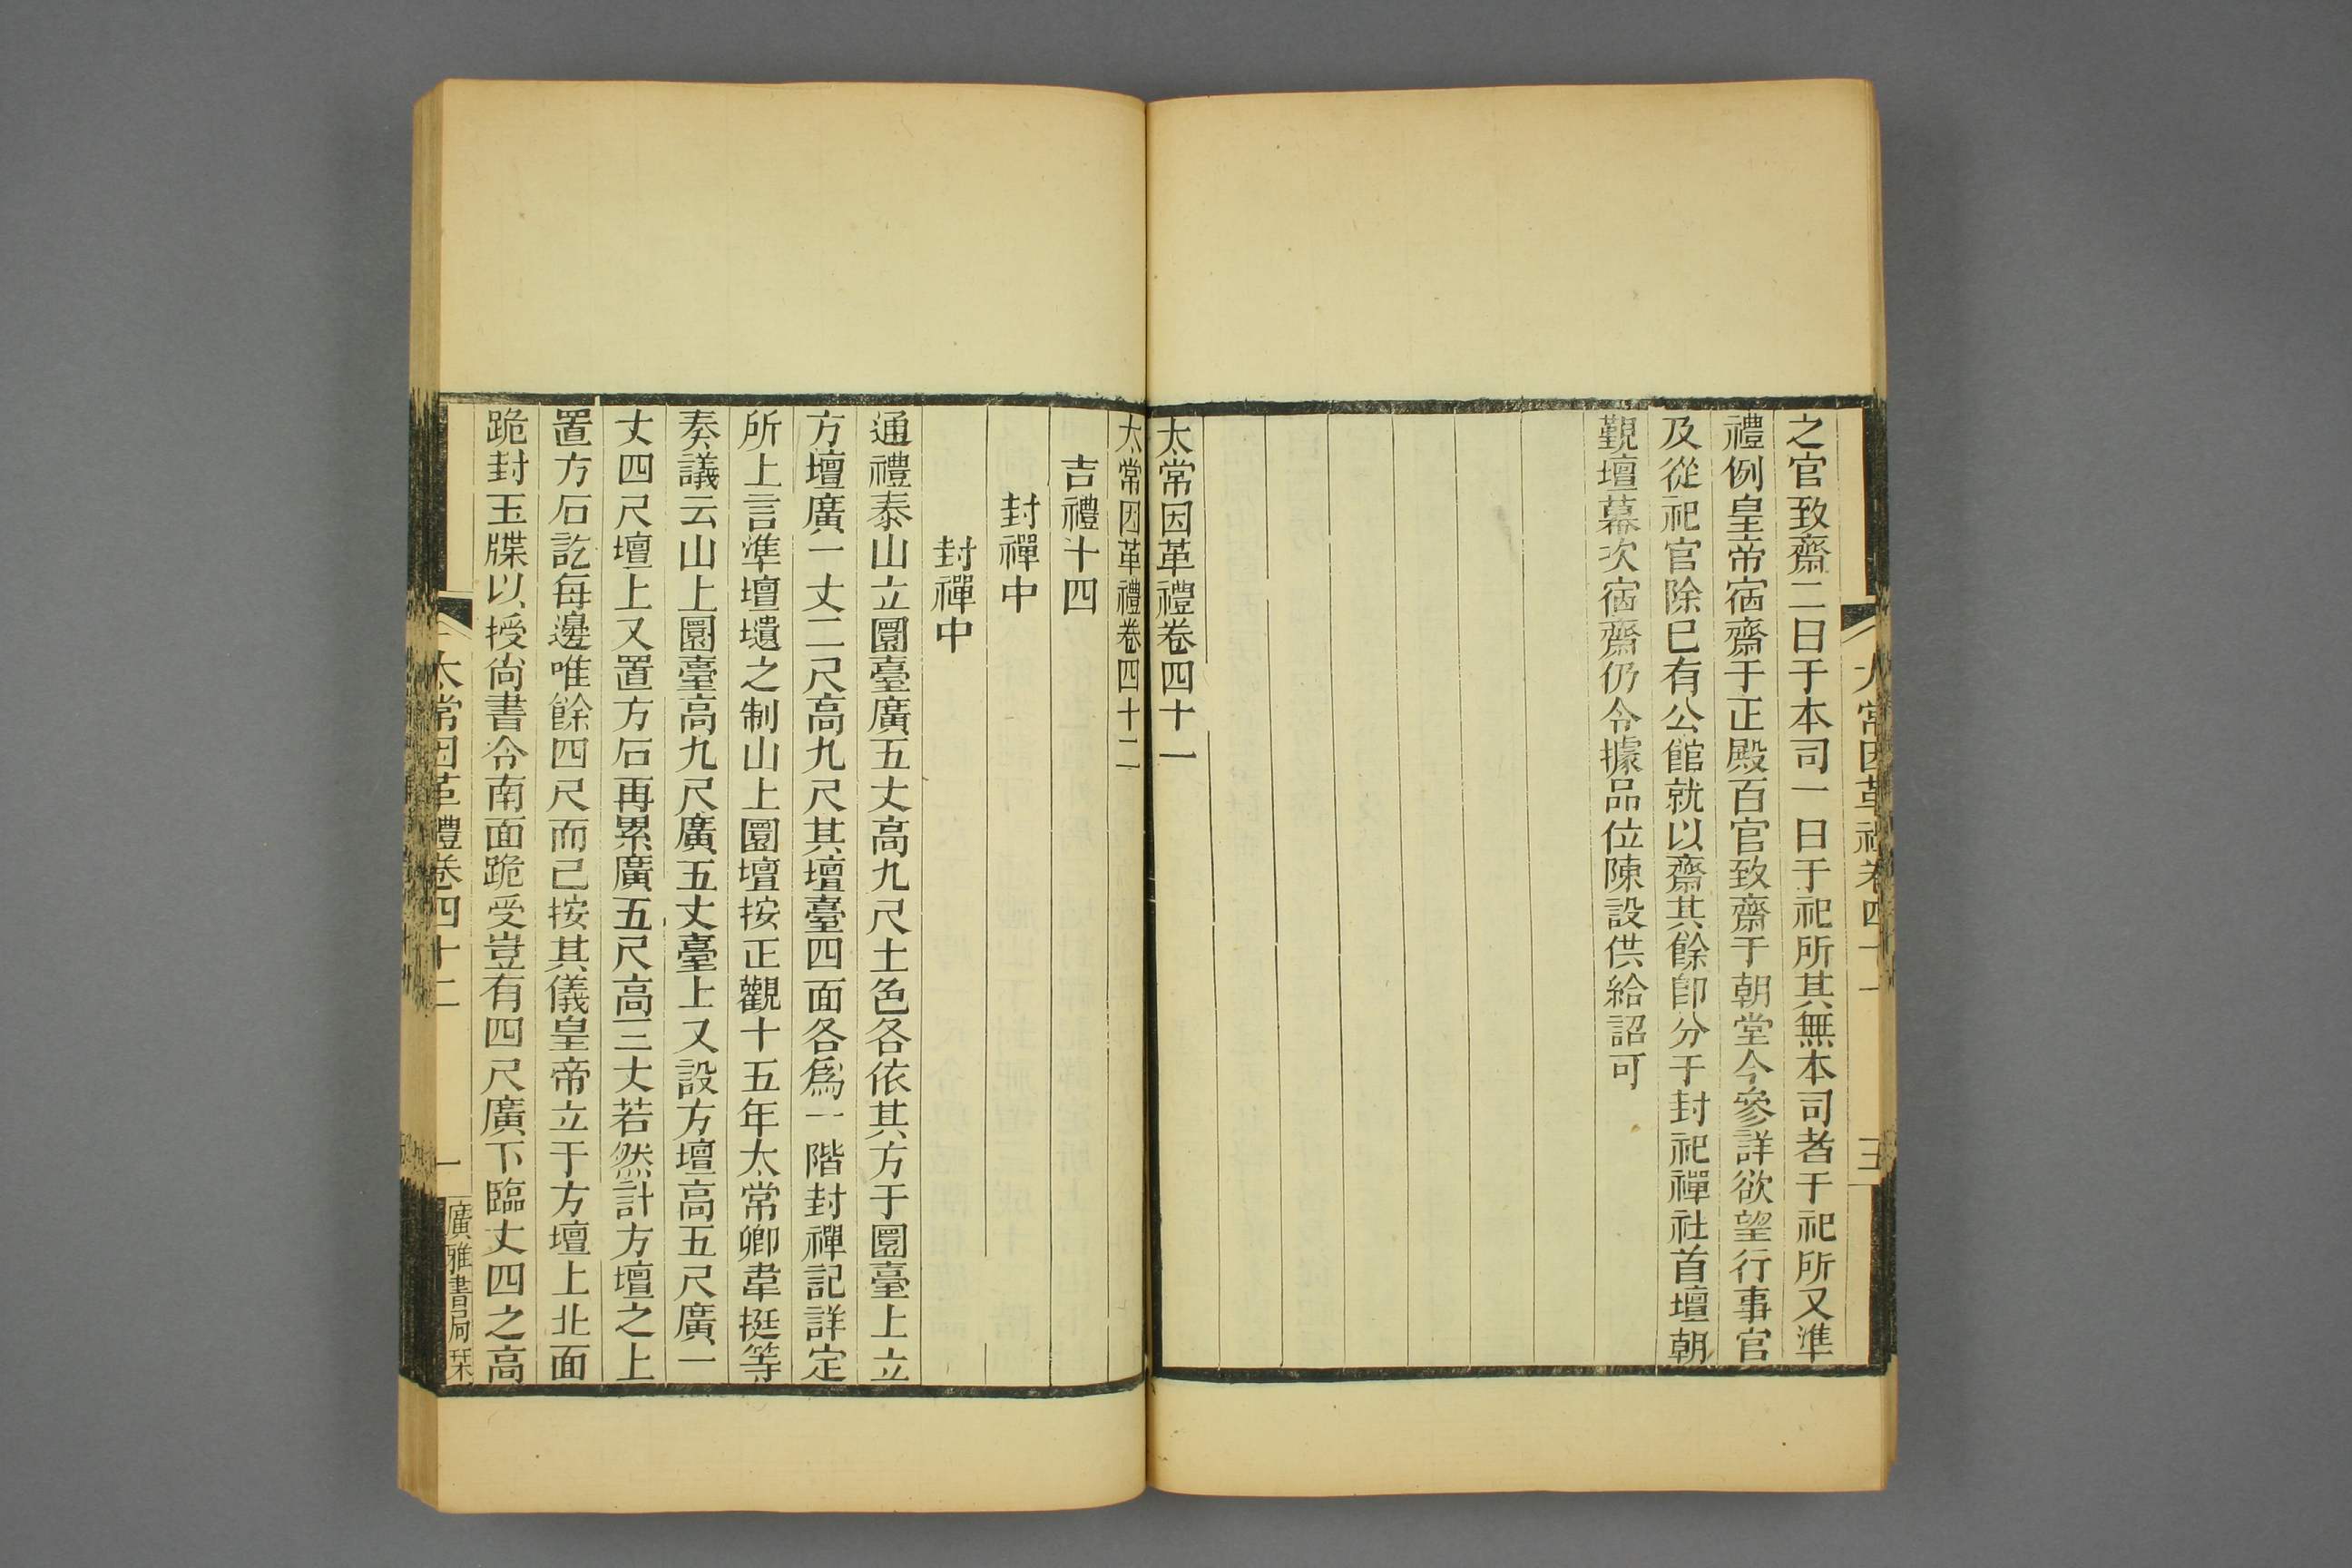 之官致齋二日于本司一日于祀所其無本司者于祀所又準
禮例皇帝宿齋于正殿百官致齋于朝堂今參詳欲望行事官
及從祀官除已有公館就以齋其餘卽分于封祀禪社首壇朝
覲壇幕次宿齋仍令據品位陳設供給詔可
太常因革禮卷四十一
太常因革禮卷四十二
吉禮十四
封禪中
封禪中
通禮泰山立圜臺廣五丈高九尺土色各依其方于圜臺上立
方壇廣一丈二尺高九尺其壇臺四面各爲一階封禪記詳定
所上言準壇壝之制山上圜壇按正觀十五年太常卿韋挺等
奏議云山上圜臺高九尺廣五丈臺上又設方壇高五尺廣一
丈四尺壇上又置方石再累廣五尺高三丈若然計方壇之上
置方石訖每邊唯餘四尺而已按其儀皇帝立于方壇上北面
跪封玉牒以授尙書令南面跪受豈有四尺廣下臨丈四之高
太常因革禮卷四十二
一
廣雅書局栞